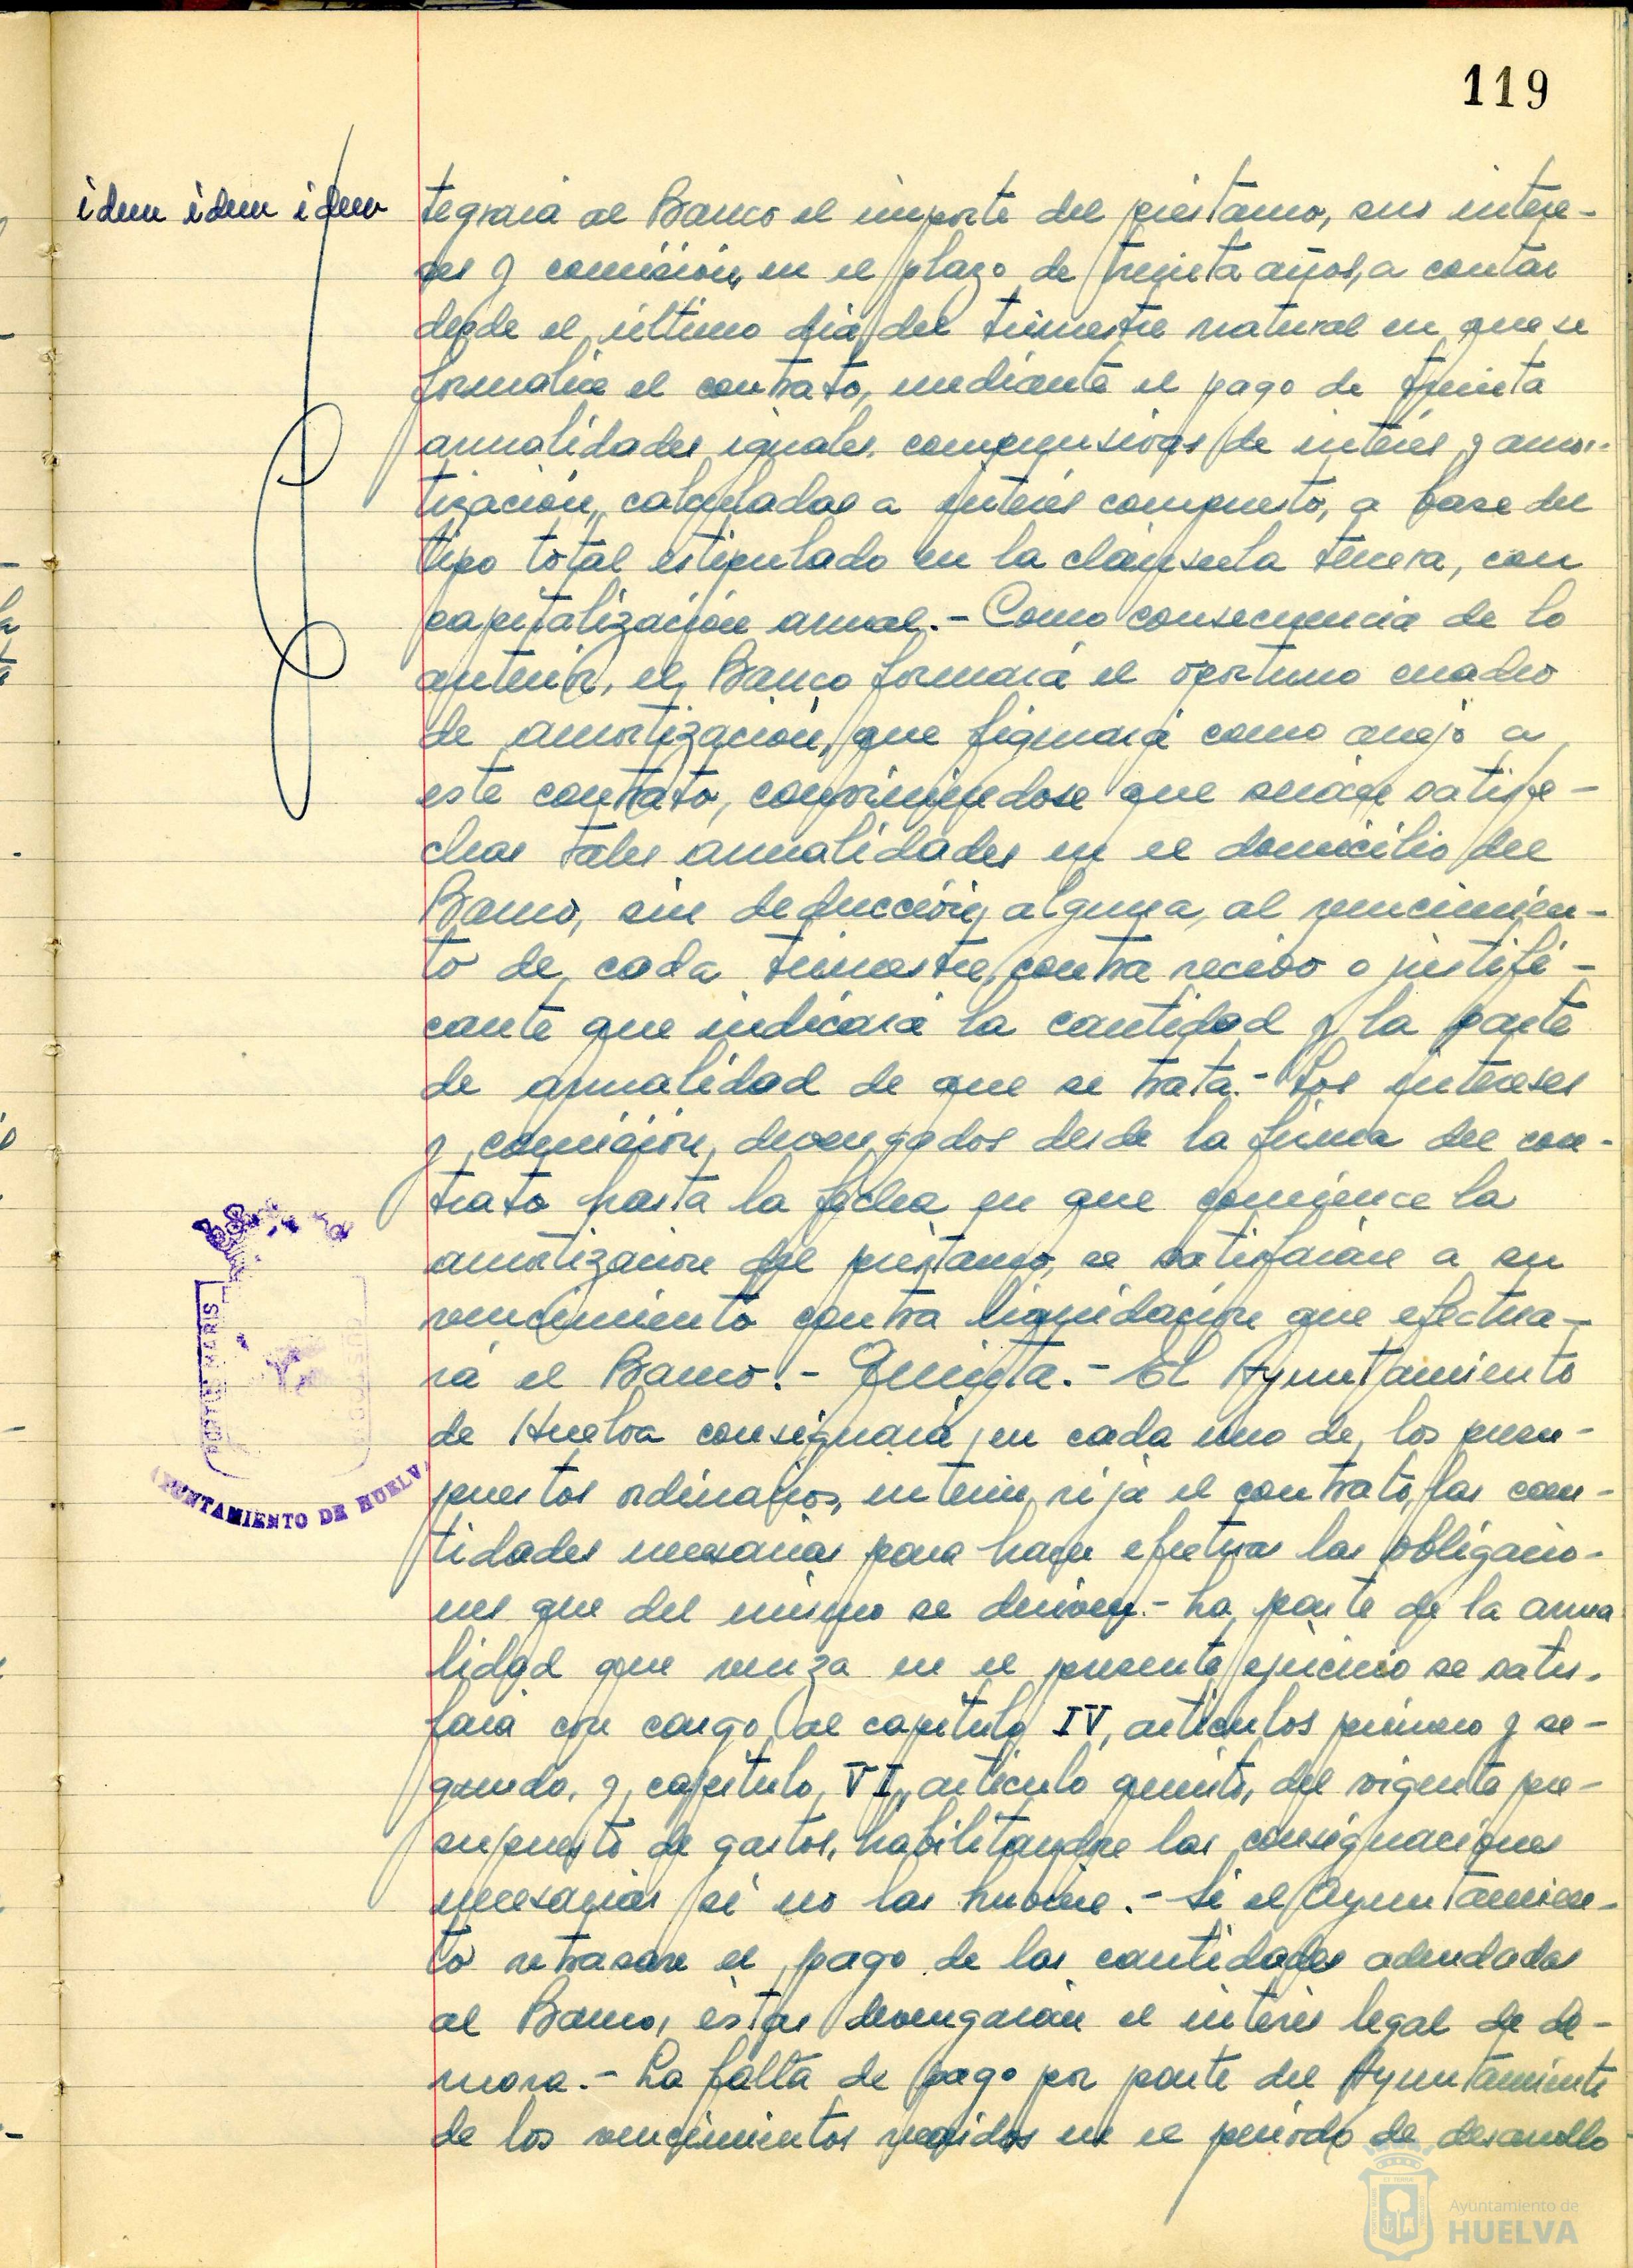 119
idem idem idem
tegrará al Banco el importe del préstamo, sus intere-
ses y comisión, en el plazo de treinta años, a contar
desde el último día del trimestre natural en que se
formalice el contrato, mediante el pago de treinta
anualidades iguales, comprensivas de interés y amor-
tización, calculadas a interés compuesto, a base del
tipo total estipulado en la cláusula tercera, con
capitalización anual.- Como consecuencia de lo
anterior, el Banco formará el oportuno cuadro
de amortización, que figurará como anejo a
este contrato, conviniéndose que serán satisfe-
chas tales anualidades en el domicilio del
Banco, sin deducción alguna, al vencimien-
to de cada trimestre, contra recibo o justifi-
cante que indicará la cantidad y la parte
de anualidad de que se trata.- Los intereses
y comisión, devengados desde la firma del con-
trato hasta la fecha en que comience la
amortización del préstamo, se satisfarán a su
vencimiento contra liquidación que efectua-
rá el Banco.- Quinta.- El Ayuntamiento
de Huelva consignará, en cada uno de los presu-
puestos ordinarios, interin rija el contrato, las can-
tidades necesarias para hacer efectivas las obligacio-
nes que del mismo se deriven.- La parte de la anua
lidad que venza en el presente ejercicio se satis-
fará con cargo al capítulo IV, artículos primero y se-
gundo, y, capítulo, VI, artículo quinto, del vigente pre-
supuesto de gastos, habilitandose las consignaciones
necesarias si no las hubiere.- Si el Ayuntamien-
to retrasare el pago de las cantidades adeudadas
al Banco, éstas devengarán el interés legal de de-
mora.- La falta de pago por parte del Ayuntamiento
de los vencimientos regidos en el período de desarrollo
PORTUS MARIS
CUSTODIA
AYUNTAMIENTO DE HUELVA
Ayuntamiento de
HUELVA